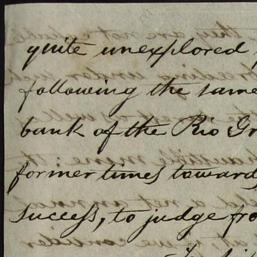 quite unexplored
following the same
bank of the Rio Gr
former times toward
success, to judge fro